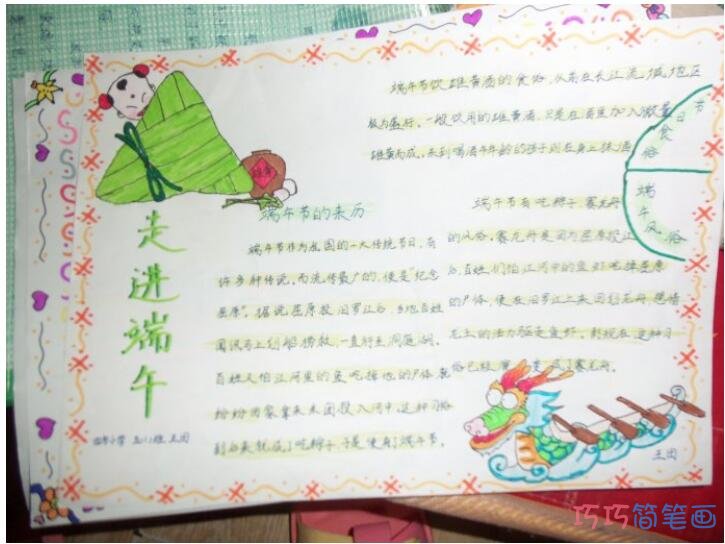 走进端午
端午节的来历
端午节作为我国的一大传统节日,有
许多种传说。而流传最广的,便是"纪念
屈原"。据说屈原投汨罗江后,当地百姓
闻讯马上划船捞救,一直行至洞庭湖。
百姓又怕江河里的鱼吃掉他的尸体,就
纷纷回家拿来米团投入河中,这种习俗
到后来就成了吃粽子
端午节饮雄黄酒的食俗,从前在长江流域地区
极为盛行。一般饮用的雄黄酒,只是在酒里加入微量
雄黄而成。未到喝酒年龄的孩子则在身上抹酒
节日食俗
端午风俗
端午节有吃粽子,赛龙舟
的风俗。赛龙舟是因为屈原投江
后,百姓们怕江河中的鱼虾吃掉屈原
的尸体,便在汨罗江上来回划龙舟,想借
龙舟的活力驱走鱼虾。
赛龙舟。
王团
雄黄
巧巧简笔画